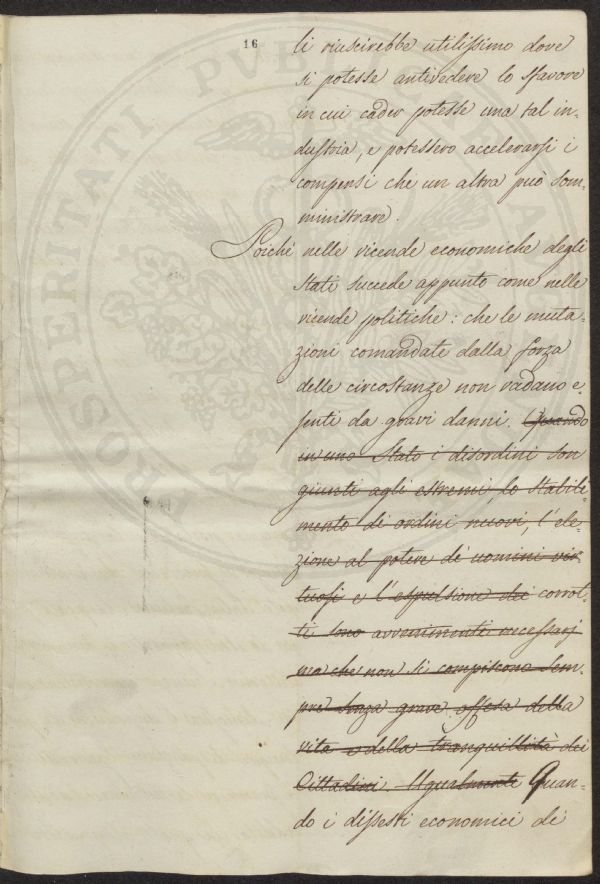 16
li riuscirebbe utilissimo dove
si potesse antivedere lo sfavore
in cui cader potesse una tal in-
dustria, e potessero accelerarsi i
compensi che un altra può som-
ministrare.
Poiché nelle vicende economiche degli
Stati succede appunto come nelle
vicende politiche: che le muta-
zioni comandate dalla forza
delle circostanze non vadano e-
senti da gravi danni. Quando
in uno Stato i disordini son
giunti agli estremi lo stabili-
mento di ordini nuovi, l'ele-
zione al potere de' uomini vir-
tuosi e l'espulsione dei corrot-
ti sono avvenimenti necessarj
ma che non si compiscono sem-
pre senza grave offesa della
vita e della tranquillità dei
Cittadini. Ugualmente Quan-
do i dissesti economici di
PROSPERITATI PVBLICAE